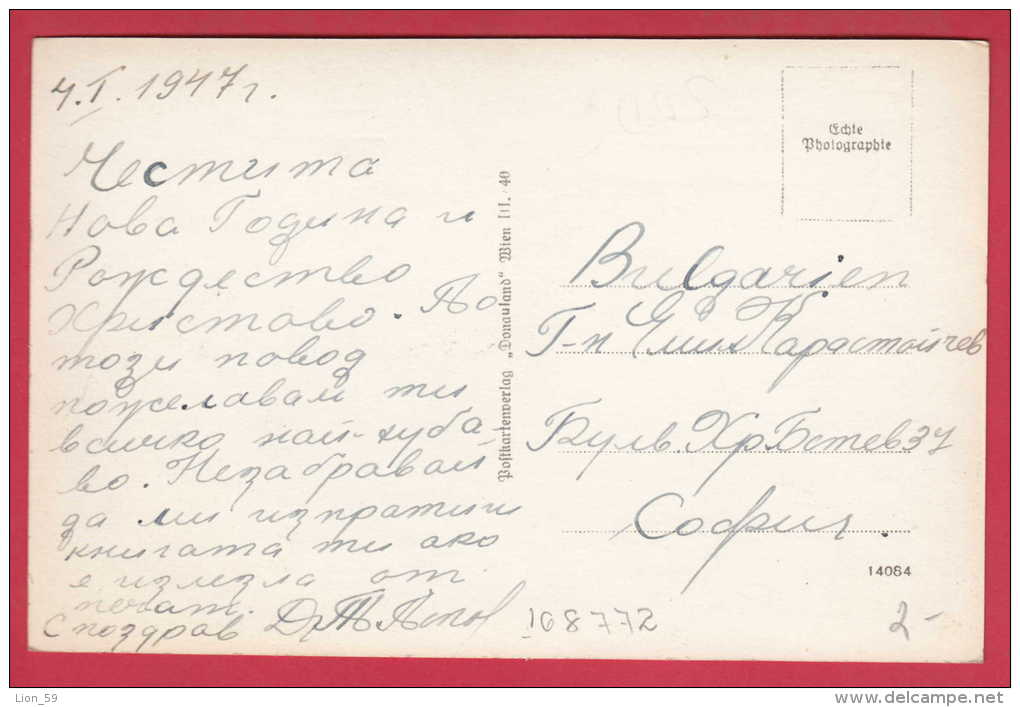 4.I.1947г.
Честита
Нова Година и
Рождество
Христово. По
този повод
пожелавам ти
всичко най-хуба-
во. Незабравяй
да ми изпратиш
книгата ти ако
е излезла от
печат.
С поздрав
Postkartenverlag „Donauland“ Wien III. 40
Echte
Photographie
Bulgarien
Г-н Емил Карастойчев
Бул. Хр. Ботев 37
София.
14084
168772
2-
Lion_59
delcampe.net